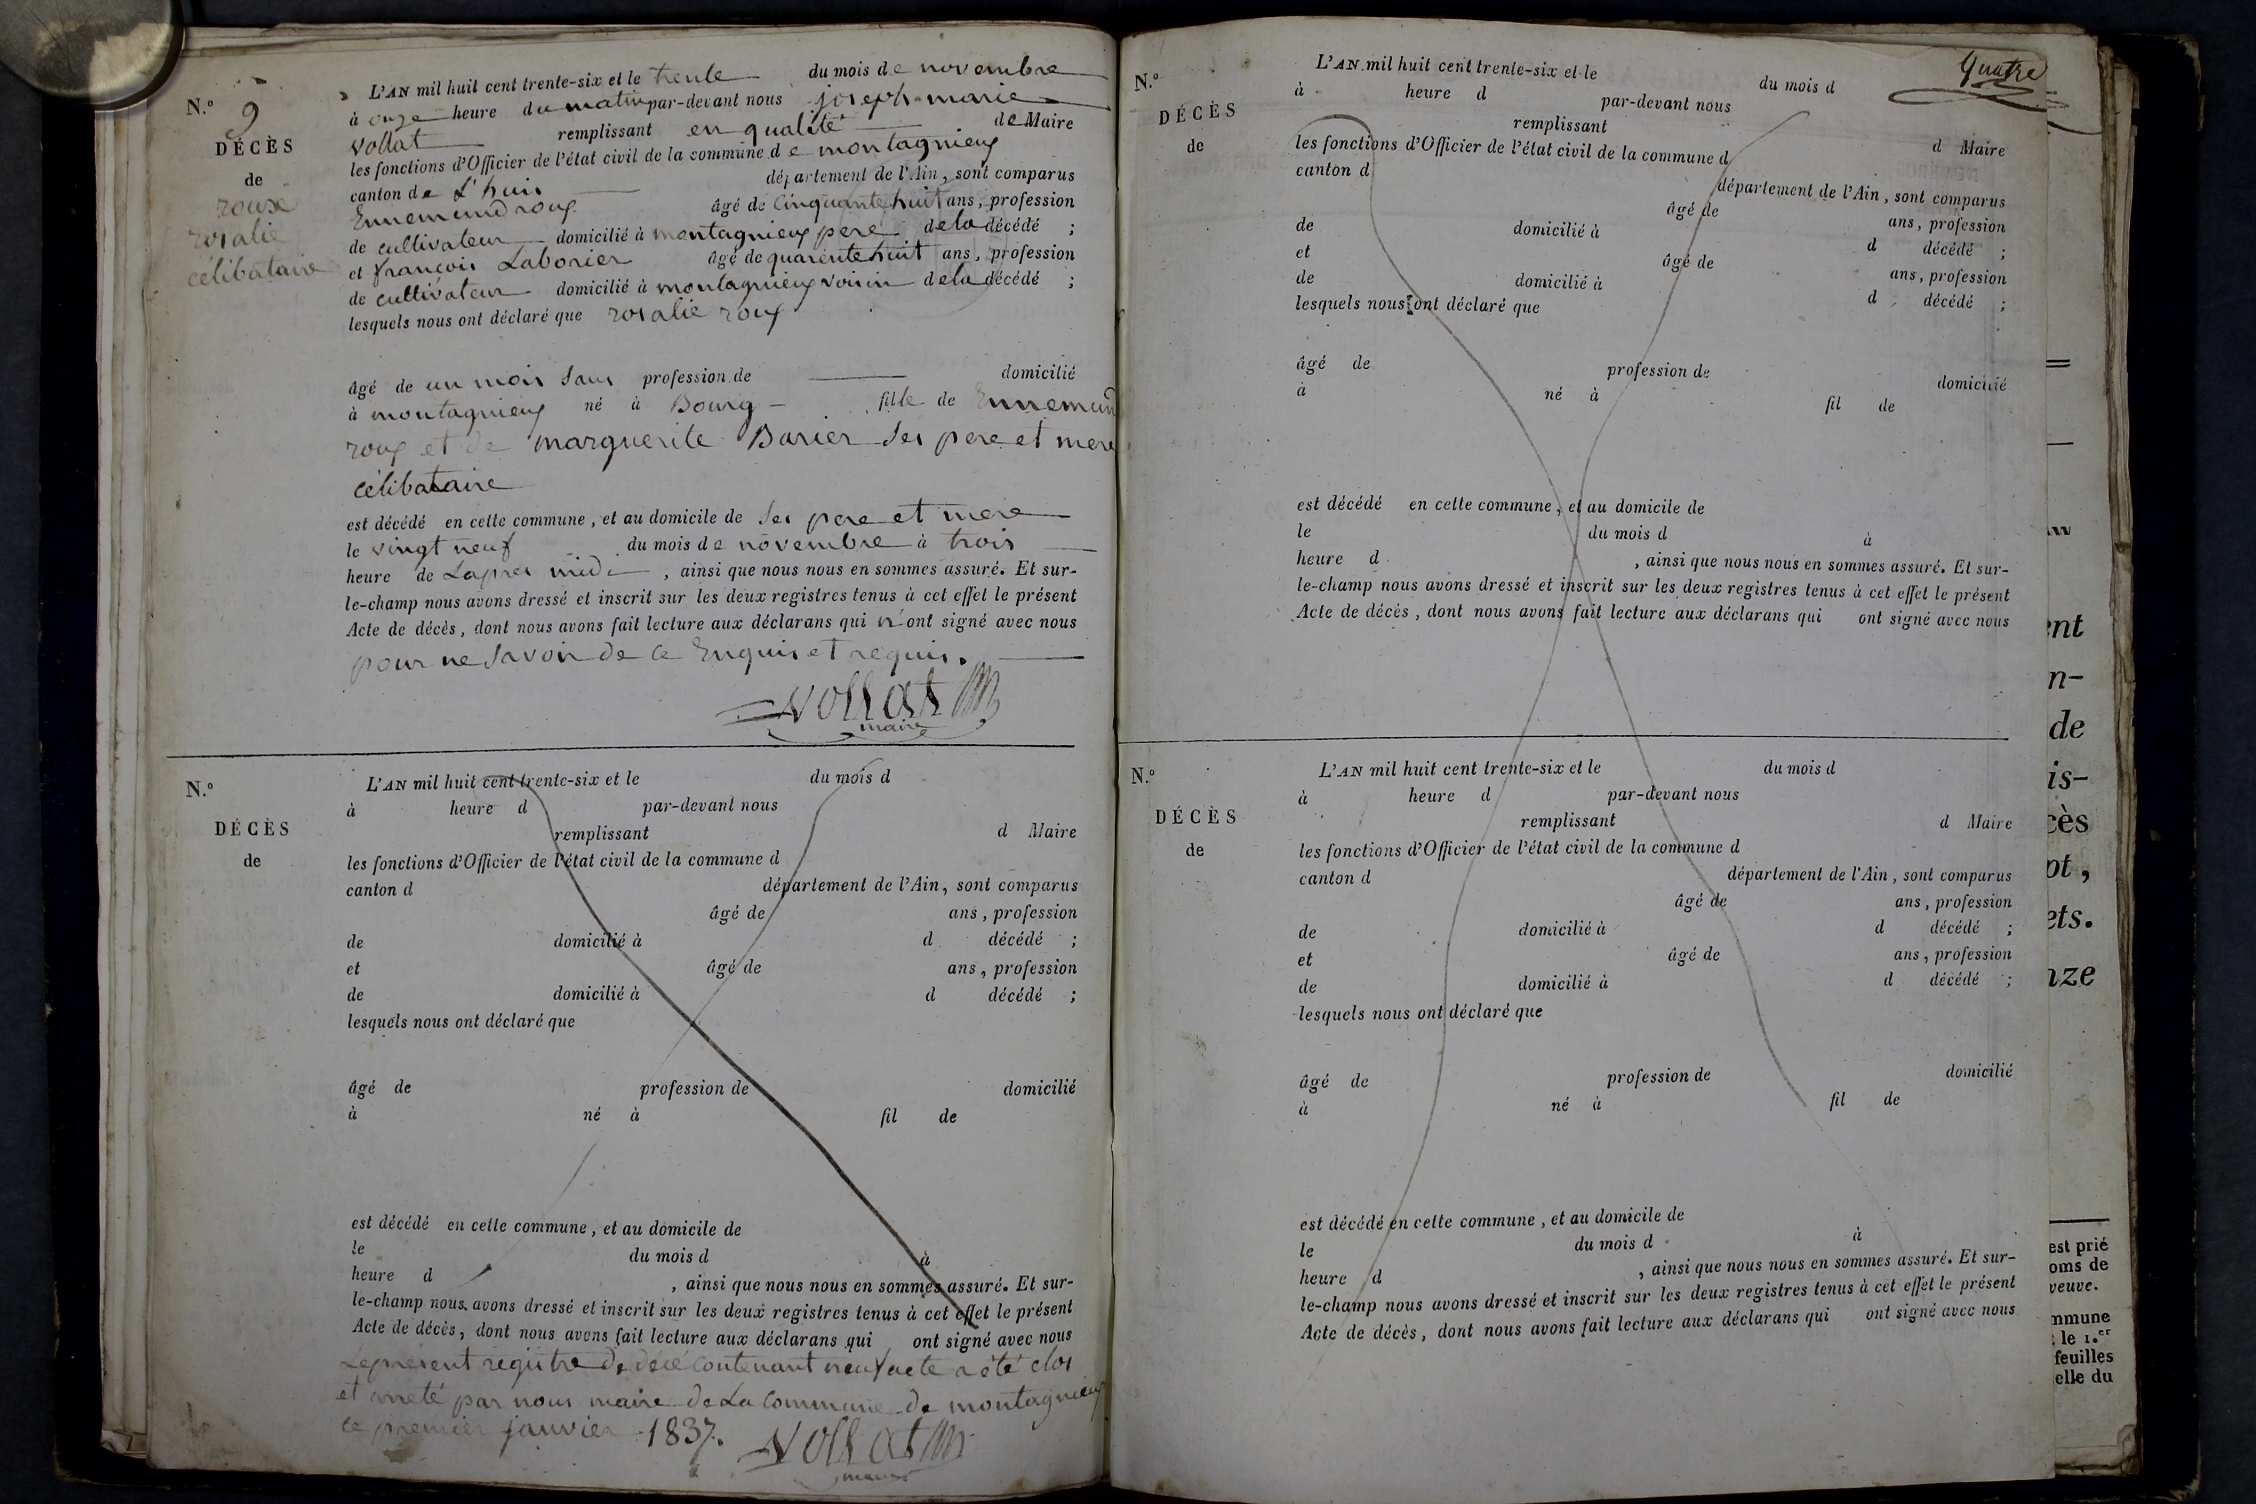 N.º 9
DÉCÈS
de
rouse
rosalie
célibataire
L'AN mil huit cent trente-six et le trente du mois de novembre
à onze heure du matin par-devant nous joseph-marie
vollat remplissant en qualité de Maire
les fonctions d'Officier de l'état civil de la commune de montagnieux
canton de L'huis département de l'Ain, sont comparus
Ennemund roux âgé de cinquante huit ans, profession
de cultivateur domicilié à montagnieux pere de la décédé ;
et françois Laborier âgé de quarente huit ans, profession
de cultivateur domicilié à montagnieux voisin de la décédé ;
lesquels nous ont déclaré que rosalie roux
âgé de un mois sans profession de domicilié
à montagnieux né à Bourg fille de Ennemund
roux et de marguerite Barier ses pere et mere
célibataire
est décédé en cette commune, et au domicile de ses pere et mere
le vingt neuf du mois de novembre à trois
heure de Lapres midi, ainsi que nous nous en sommes assuré. Et sur-
le-champ nous avons dressé et inscrit sur les deux registres tenus à cet effet le présent
Acte de décès, dont nous avons fait lecture aux déclarans qui n'ont signé avec nous
pour ne savoir de ce Enquis et requis.
vollat
maire
N.º
DÉCÈS
de
L'AN mil huit cent trente-six et le du mois d
à heure d par-devant nous
remplissant d Maire
les fonctions d'Officier de l'état civil de la commune d
canton d département de l'Ain, sont comparus
âgé de ans, profession
de domicilié à d décédé ;
et âgé de ans, profession
de domicilié à d décédé ;
lesquels nous ont déclaré que
âgé de profession de domicilié
à né à fil de
est décédé en cette commune, et au domicile de
le du mois d à
heure d , ainsi que nous nous en sommes assuré. Et sur-
le-champ nous avons dressé et inscrit sur les deux registres tenus à cet effet le présent
Acte de décès, dont nous avons fait lecture aux déclarans qui ont signé avec nous
Le présent registre de décé contenant neuf acte a été clos
et arreté par nous maire de La commune de montagnieux
ce premier janvier 1837.
vollat
maire
Quatre
N.º
DÉCÈS
de
L'AN mil huit cent trente-six et le du mois d
à heure d par-devant nous
remplissant d Maire
les fonctions d'Officier de l'état civil de la commune d
canton d département de l'Ain, sont comparus
âgé de ans, profession
de domicilié à d décédé ;
et âgé de ans, profession
de domicilié à d décédé ;
lesquels nous ont déclaré que
âgé de profession de domicilié
à né à fil de
est décédé en cette commune, et au domicile de
le du mois d à
heure d , ainsi que nous nous en sommes assuré. Et sur-
le-champ nous avons dressé et inscrit sur les deux registres tenus à cet effet le présent
Acte de décès, dont nous avons fait lecture aux déclarans qui ont signé avec nous
N.º
DÉCÈS
de
L'AN mil huit cent trente-six et le du mois d
à heure d par-devant nous
remplissant d Maire
les fonctions d'Officier de l'état civil de la commune d
canton d département de l'Ain, sont comparus
âgé de ans, profession
de domicilié à d décédé ;
et âgé de ans, profession
de domicilié à d décédé ;
lesquels nous ont déclaré que
âgé de profession de domicilié
à né à fil de
est décédé en cette commune, et au domicile de
le du mois d à
heure d , ainsi que nous nous en sommes assuré. Et sur-
le-champ nous avons dressé et inscrit sur les deux registres tenus à cet effet le présent
Acte de décès, dont nous avons fait lecture aux déclarans qui ont signé avec nous
ent
n-
de
is-
cès
pt,
ets.
nze
est prié
oms de
veuve.
mmune
le 1.er
feuilles
elle du